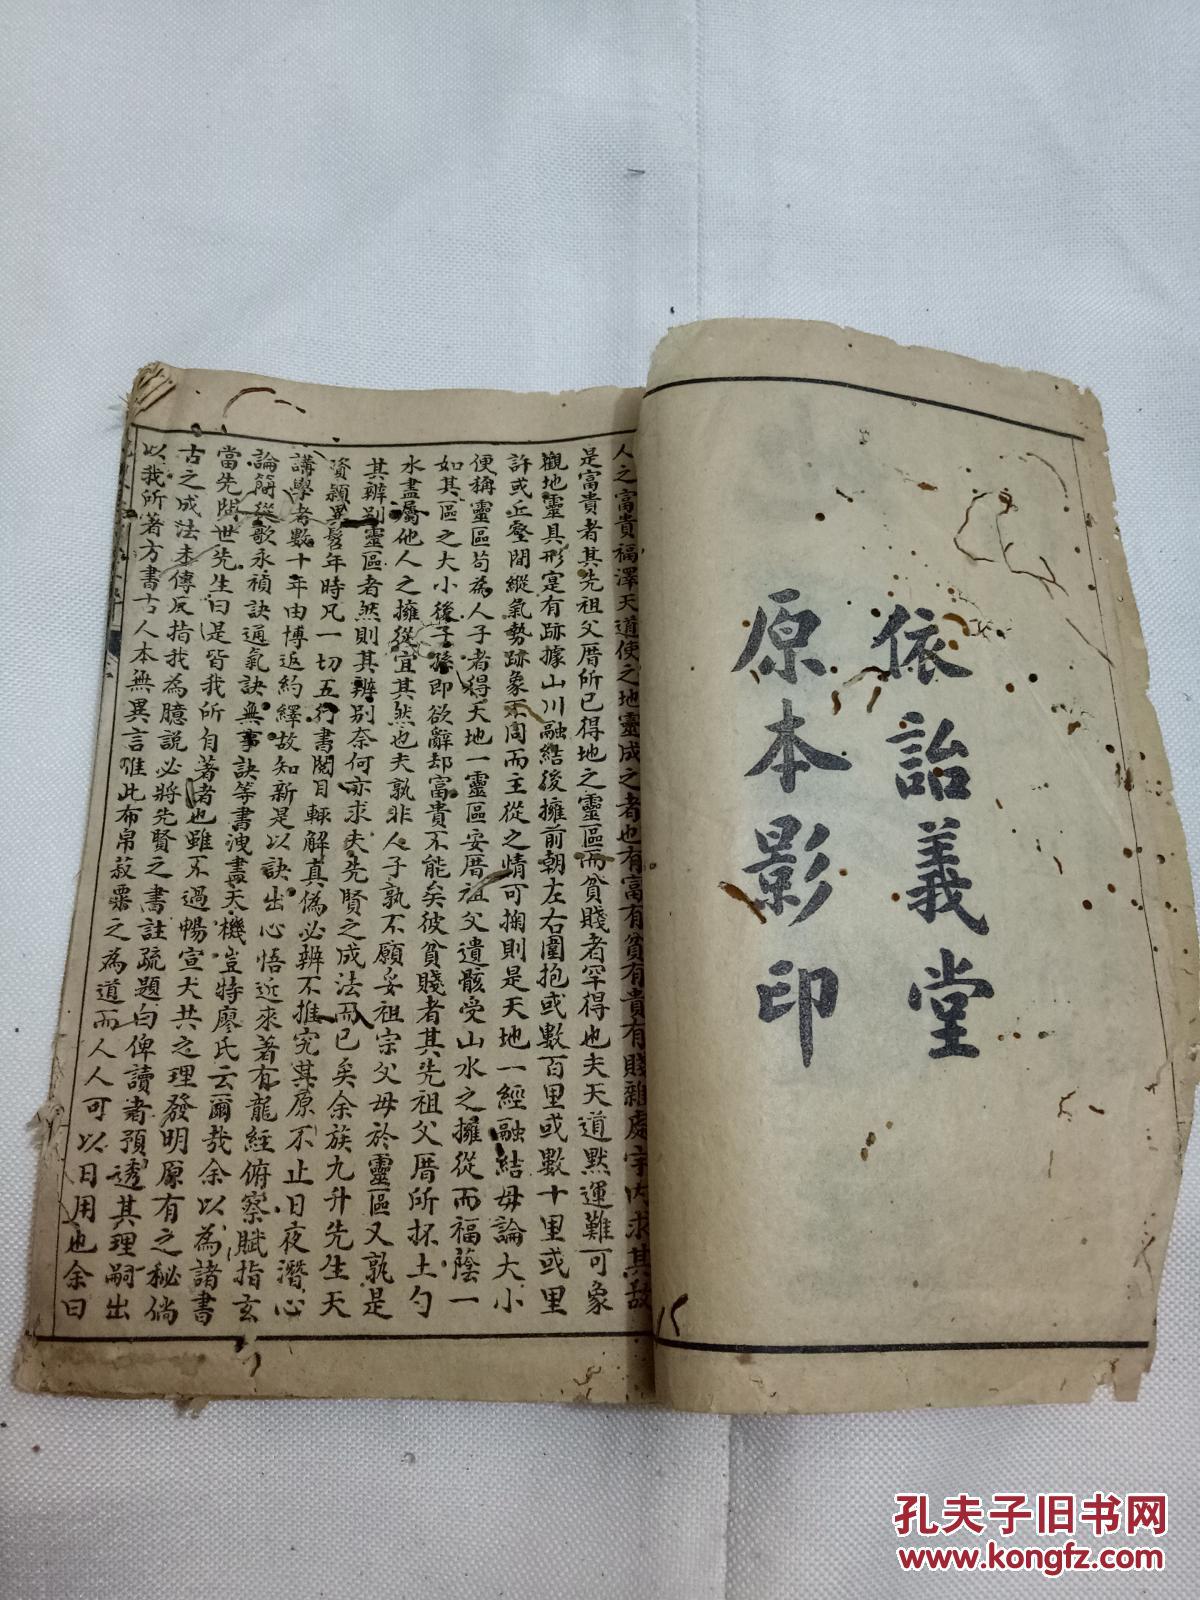 依詒義堂
原本影印
人之富貴福澤天道使之地靈成之者也有富有貧有貴有賤雜處宇內求其故
是富貴者其先祖父厝所已得地之靈區而貧賤者罕得也夫天道默運難可象
觀地靈具形寔有跡據山川融結後擁前朝左右圍抱或數百里或數十里或里
許或丘壑間縱氣勢跡象不同而主從之情可掬則是天地一經融結毋論大小
便稱靈區苟為人子者得天地一靈區安厝祖父遺骸受山水之擁從而福蔭一
如其區之大小後子孫即欲辭却富貴不能矣彼貧賤者其先祖父厝所抔土勺
水盡屬他人之擁從宜其然也夫孰非人子孰不願妥祖宗父母於靈區又孰是
其辨別靈區者然則其辨別奈何亦求夫先賢之成法而已矣余族九升先生天
資穎異髫年時凡一切五行書閱目輒解真偽必辨不推究其原不止日夜潛心
講學者數十年由博返約繹故知新是以訣出心悟近來著有龍經俯察賦指玄
論簡從歌永禎訣通氣訣無事訣等書洩盡天機豈特廖氏云爾哉余以為諸書
當先問世先生曰是皆我所自著者也雖不過暢宣天共之理發明原有之秘倘
古之成法未傳反指我為臆說必將先賢之書註疏題白俾讀者預透其理嗣出
以我所著方書古人本無異言唯此布帛菽粟之為道而人人可以日用也余曰
孔夫子旧书网
www.kongfz.com